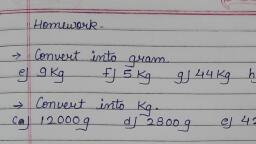 Homework.
→ Convert into gram.
e) 9Kg f) 5 Kg g) 44Kg h
→ Convert into Kg.
ca) 12000g d) 2800g e) 42